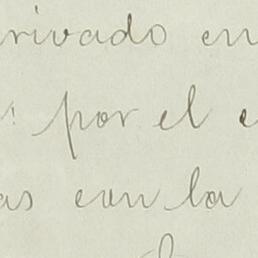 rivado en
por el e
as con la